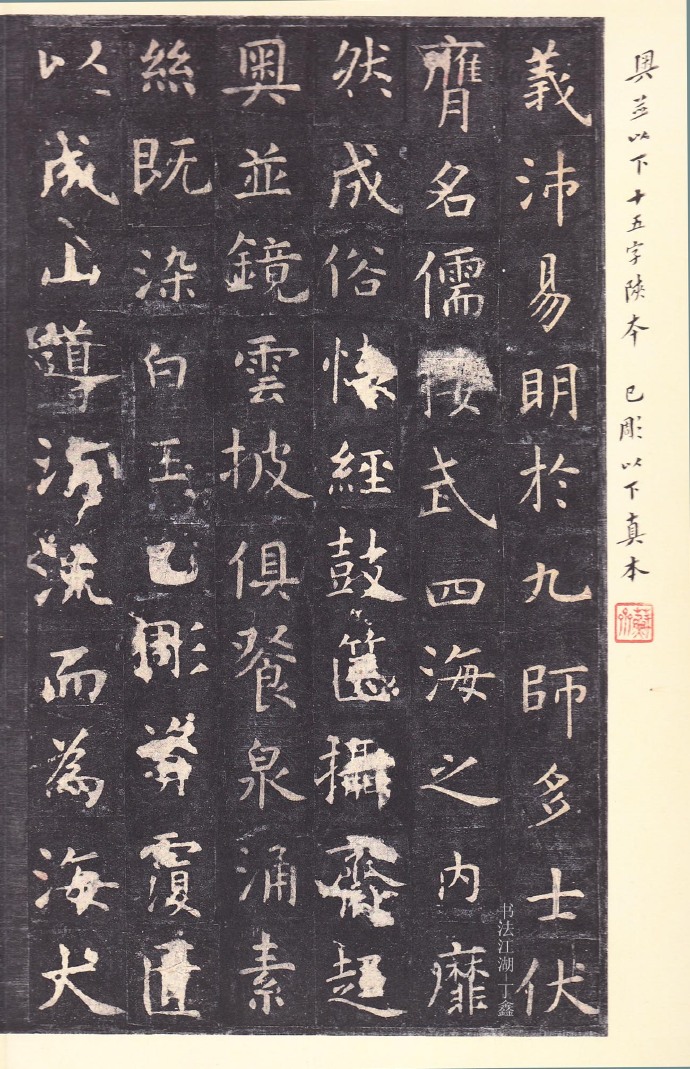 奧並以下十五字陝本 已彫以下真本
義沛易明於九師多士伏
膺名儒接武四海之內靡
然成俗懷經鼓篋攝齋趍
奧並鏡雲披俱餐泉涌素
絲既染白玉已彫覆匱
以成山導流而為海大
书法江湖 丁鑫